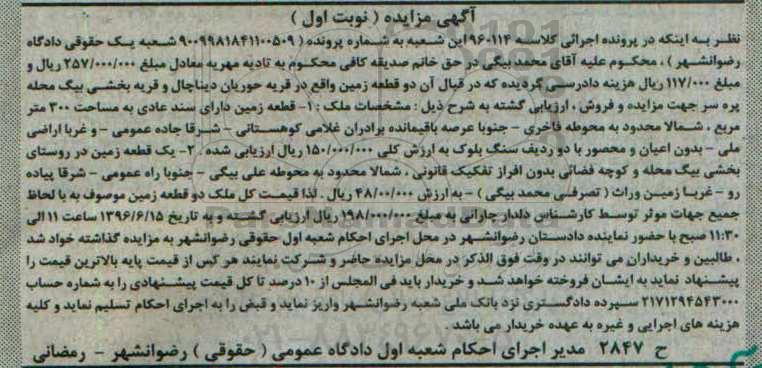 آگهی مزایده ( نوبت اول )
نظر به اینکه در پرونده اجرائی کلاسه ۹۶۰۱۱۴ این شعبه به شماره پرونده ( ۹۰۰۹۹۸۱۸۴۱۱۰۰۵۰۹ شعبه یک حقوقی دادگاه
رضوانشهر ) ، محکوم علیه آقای محمد بیگی در حق خانم صدیقه کافی محکوم به تادیه مهریه معادل مبلغ ۲۵۷/۰۰۰/۰۰۰ ریال و
مبلغ ۱۱۷/۰۰۰ ریال هزینه دادرسی گردیده که در قبال آن دو قطعه زمین واقع در قریه حوریان دیناچال و قریه بخشی بیگ محله
پره سر جهت مزایده و فروش ، ارزیابی گشته به شرح ذیل : مشخصات ملک : ۱- قطعه زمین دارای سند عادی به مساحت ۳۰۰ متر
مربع ، شمالا محدود به محوطه فاخری - جنوبا عرصه باقیمانده برادران غلامی کوهستانی - شرقا جاده عمومی - و غربا اراضی
ملی - بدون اعیان و محصور با دو ردیف سنگ بلوک به ارزش کلی ۱۵۰/۰۰۰/۰۰۰ ریال ارزیابی شده . ۲- یک قطعه زمین در روستای
بخشی بیگ محله و کوچه فضائی بدون افراز تفکیک قانونی ، شمالا محدود به محوطه علی بیگی - جنوبا راه عمومی - شرقا پیاده
رو - غربا زمین وراث ( تصرفی محمد بیگی ) - به ارزش ۴۸/۰۰/۰۰۰ ریال . لذا قیمت کل ملک دو قطعه زمین موصوف به با لحاظ
جمیع جهات موثر توسط کارشناس دلدار چارانی به مبلغ ۱۹۸/۰۰۰/۰۰۰ ریال ارزیابی گشته و به تاریخ ۱۳۹۶/۶/۱۵ ساعت ۱۱ الی
۱۱:۳۰ صبح با حضور نماینده دادستان رضوانشهر در محل اجرای احکام شعبه اول حقوقی رضوانشهر به مزایده گذاشته خواد شد
، طالبین و خریداران می توانند در وقت فوق الذکر در محل مزایده حاضر و شرکت نمایند هر کس از قیمت پایه بالاترین قیمت را
پیشنهاد نماید به ایشان فروخته خواهد شد و خریدار باید فی المجلس از ۱۰ درصد تا کل قیمت پیشنهادی را به شماره حساب
۲۱۷۱۲۹۴۵۴۳۰۰۰ سپرده دادگستری نزد بانک ملی شعبه رضوانشهر واریز نماید و قبض را به اجرای احکام تسلیم نماید و کلیه
هزینه های اجرایی و غیره به عهده خریدار می باشد .
ح ۲۸۴۷ مدیر اجرای احکام شعبه اول دادگاه عمومی ( حقوقی ) رضوانشهر - رمضانی